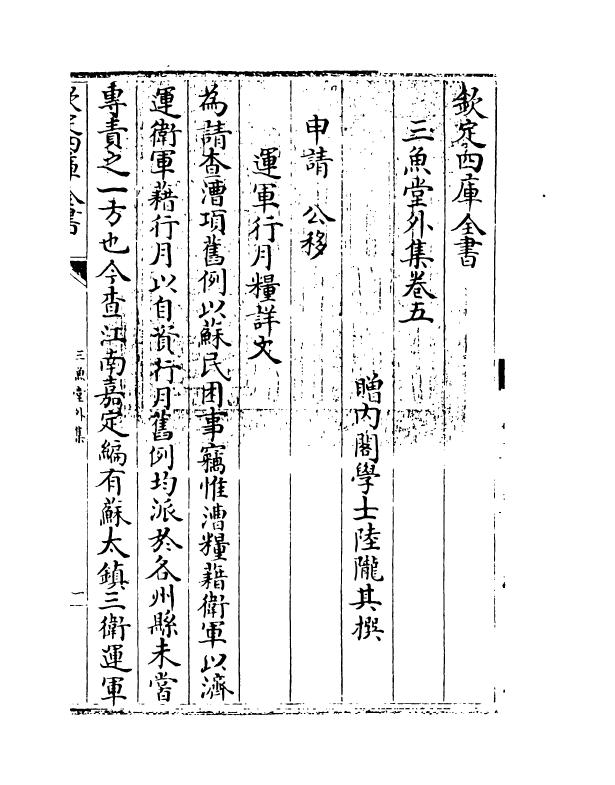 欽定四庫全書
三魚堂外集卷五
贈内閣學士陸隴其撰
申請 公移
運軍行月糧詳文
為請查漕項舊例以蘇民困事竊惟漕糧藉衛軍以濟
運衛軍藉行月以自資行月舊例均派於各州縣未嘗
專責之一方也今查江南嘉定編有蘇太鎮三衛運軍
欽定四庫全書
三魚堂外集
一